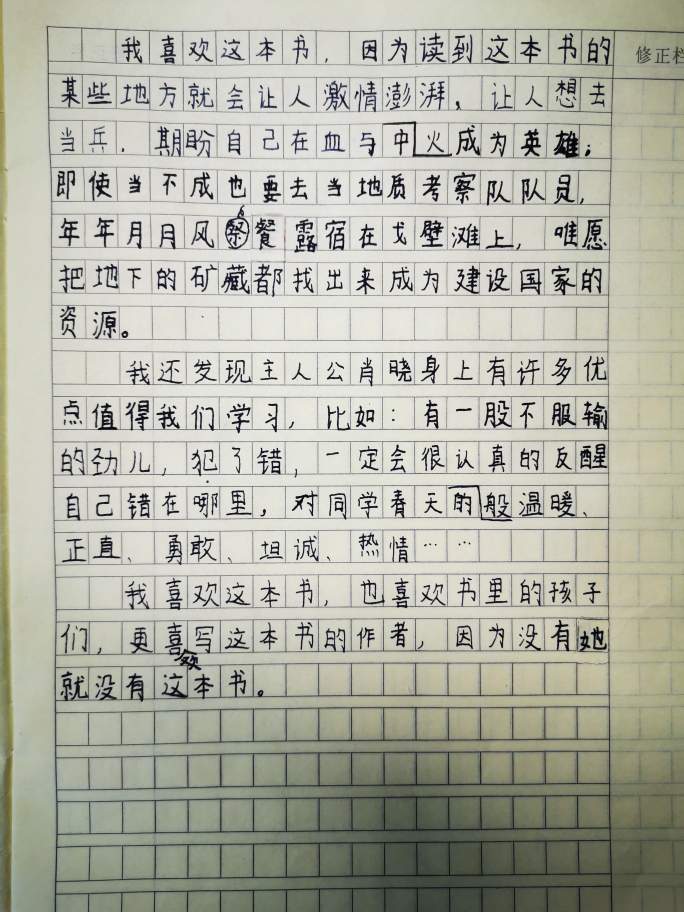 修正栏
我喜欢这本书，因为读到这本书的
某些地方就会让人激情澎湃，让人想去
当兵，期盼自己在血与中火成为英雄；
即使当不成也要去当地质考察队队员，
年年月月风餐露宿在戈壁滩上，唯愿
把地下的矿藏都找出来成为建设国家的
资源。
我还发现主人公肖晓身上有许多优
点值得我们学习，比如：有一股不服输
的劲儿，犯了错，一定会很认真的反醒
自己错在哪里，对同学春天的般温暖、
正直、勇敢、坦诚、热情……
我喜欢这本书，也喜欢书里的孩子
们，更喜欢写这本书的作者，因为没有她
就没有这本书。